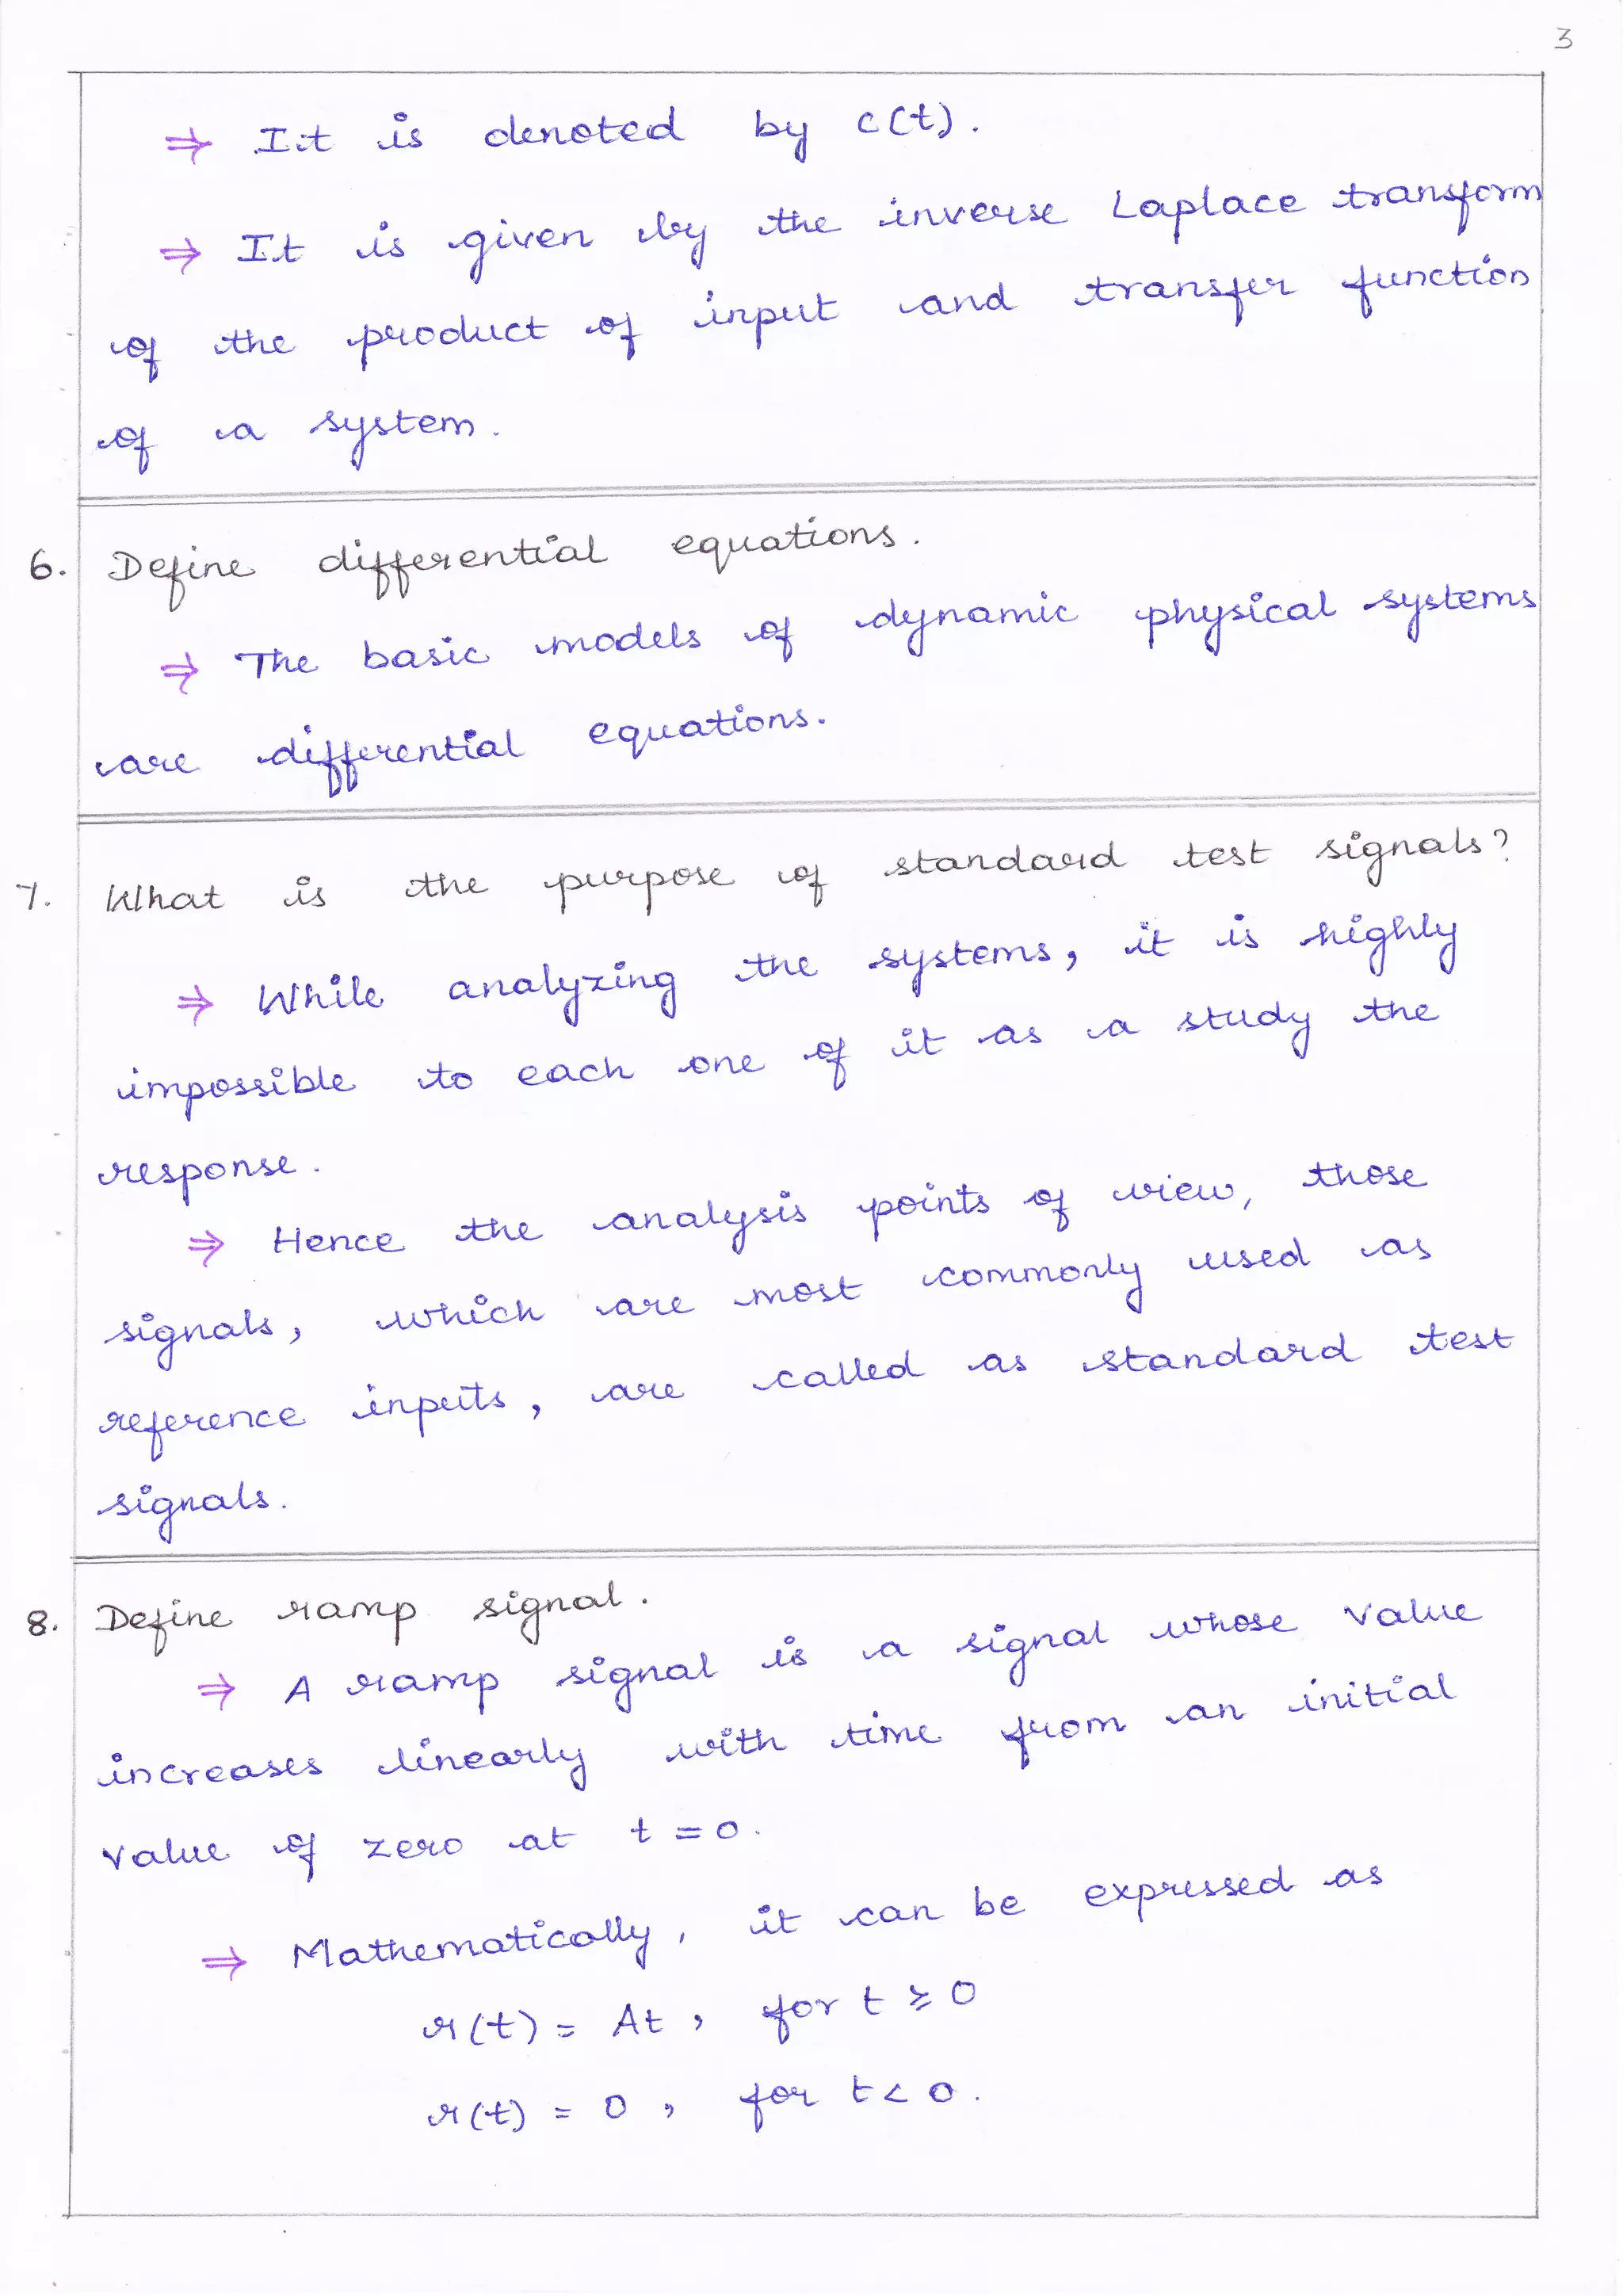 3
⇒ It is denoted by c(t).
⇒ It is given by the inverse Laplace transform
of the product of input and transfer function
of a system.
6. Define differential equations.
⇒ The basic models of dynamic physical systems
are differential equations.
7. What is the purpose of standard test signals?
⇒ While analyzing the systems, it is highly
impossible to each one of it as a study the
response.
⇒ Hence the analysis points of view, those
signals, which are most commonly used as
reference inputs, are called as standard test
signals.
8. Define ramp signal.
⇒ A ramp signal is a signal whose value
increases linearly with time from an initial
value of zero at t = 0.
⇒ Mathematically, it can be expressed as
r(t) = At, for t ≥ 0
r(t) = 0, for t < 0.